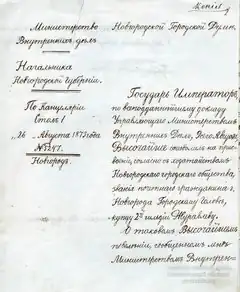 Копія
Министерство
Внутреннихъ дѣлъ
Начальника
Новгородской Губерніи.
По Канцеляріи
Столъ 1
26 Августа 1873 года
№ 5247.
Новгородъ.
Новгородской Городской Думѣ.
Государь Императоръ,
по всеподданнѣйшему докладу
Управляющаго Министерствомъ
Внутреннихъ Дѣлъ,
Высочайше соизволилъ на
согласно съ ходатайствомъ
Новгородскаго городскаго общества,
званія почетнаго гражданина г.
Новгорода Городскому Головѣ,
купцу 2й гильдіи Журавлеву.
О таковомъ Высочайшемъ
повелѣніи, сообщенномъ мнѣ
Министерствомъ Внутрен-